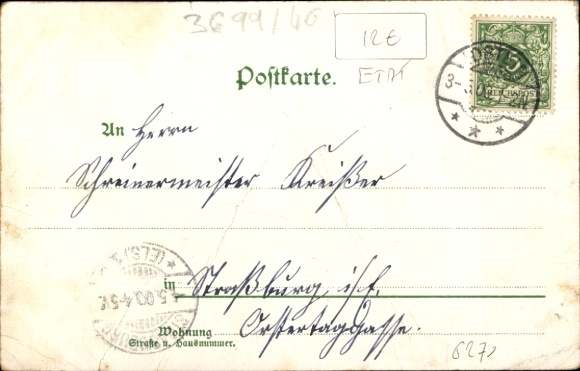 3699/46
12€
ETAT
Postkarte.
REICHSPOST
An Herrn
Schreinermeister Kreißer
in Straßburg i/E.
(ELS.)
Wohnung
Straße u. Hausnummer.
Orstertaggasse.
627